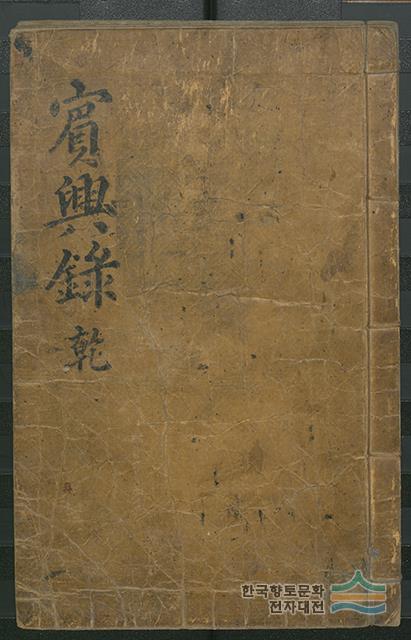 賓興錄 乾
한국향토문화
전자대전